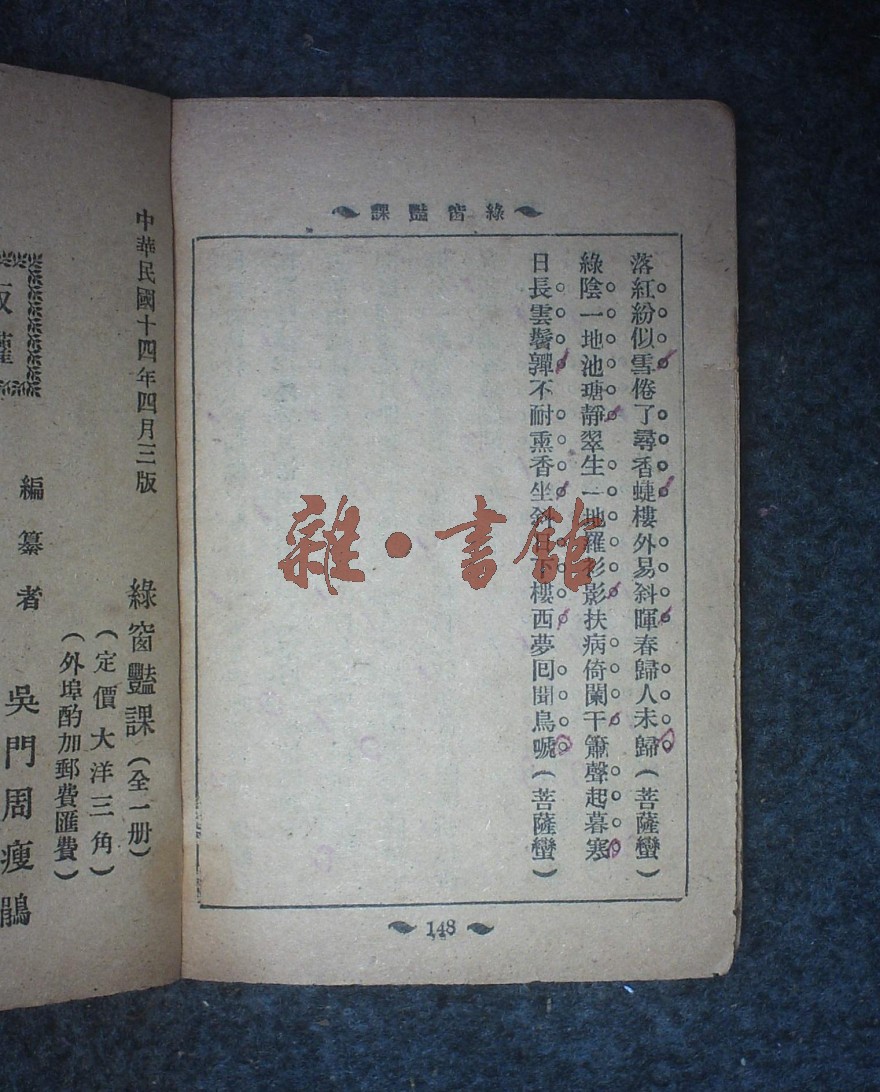 綠窗豔課
落紅紛似雪倦了尋香蜨樓外易斜暉春歸人未歸(菩薩蠻)
綠陰一地池瑭靜翠生一地羅衫影扶病倚闌干簫聲起暮寒
日長雲鬢嚲不耐熏香坐斜日下樓西夢囘聞鳥嗁(菩薩蠻)
148
雜·書館
中華民國十四年四月三版
綠窗豔課(全一册)
(定價大洋三角)
(外埠酌加郵費匯費)
編纂者 吳門周瘦鵑